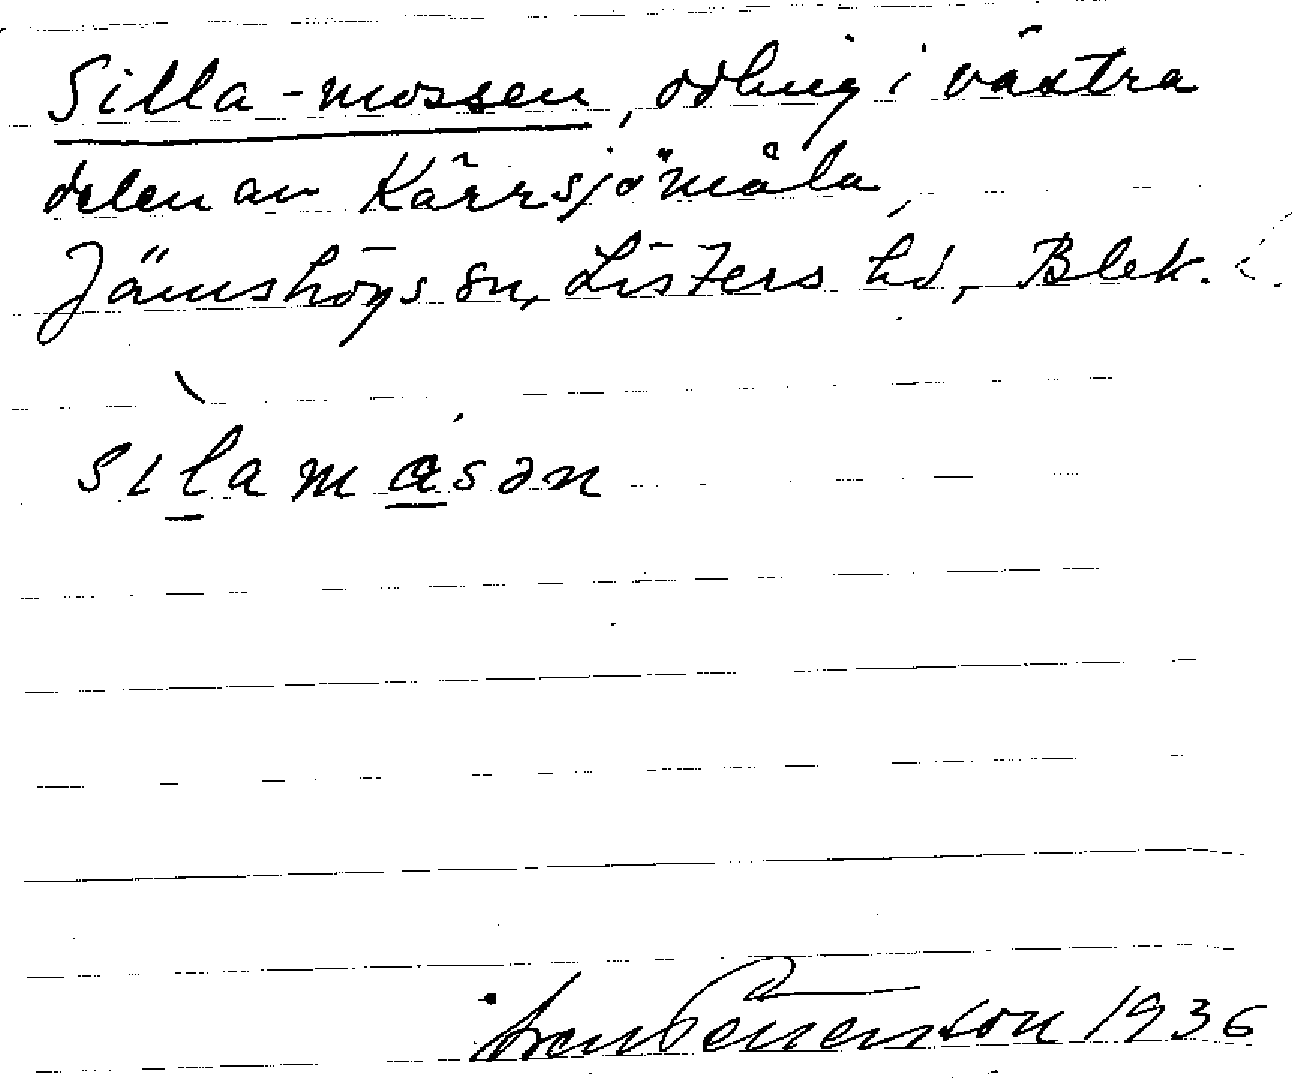 Silla-mossen, odling i västra
delen av Kärrsjömåla,
Jämshögs sn, Listers hd, Blek.
silamåsən
Sven Petersson 1936